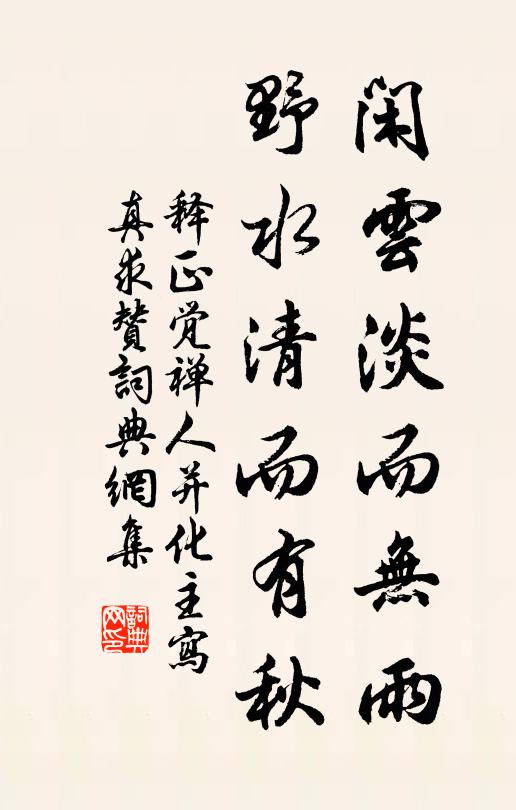 闲雲淡而無雨
野水清而有秋
释正觉禅人并化主寫
真求贊詞典網集
詞典
网印